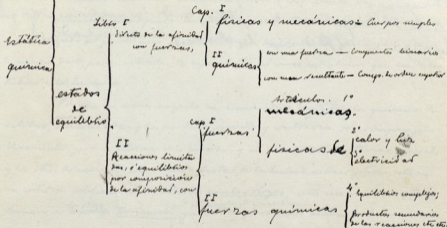 Estática
química
estados
de
equilibrio
Libro I
directo de la afinidad
con fuerzas,
Cap. I
físicas y mecánicas = Cuerpos simples
II
químicas
con una fuerza — Compuestos binarios
con una resultante — Comp. de orden superior
II
Reacciones limita
das, o equilibrios
por composición
de la afinidad, con
Cap I
fuerzas
Artículos. 1º
mecánicas.
físicas de
2º
calor y luz
3º
electricidad
II
fuerzas químicas
4º Equilibrios complejos;
productos secundarios
de las reacciones etc etc.